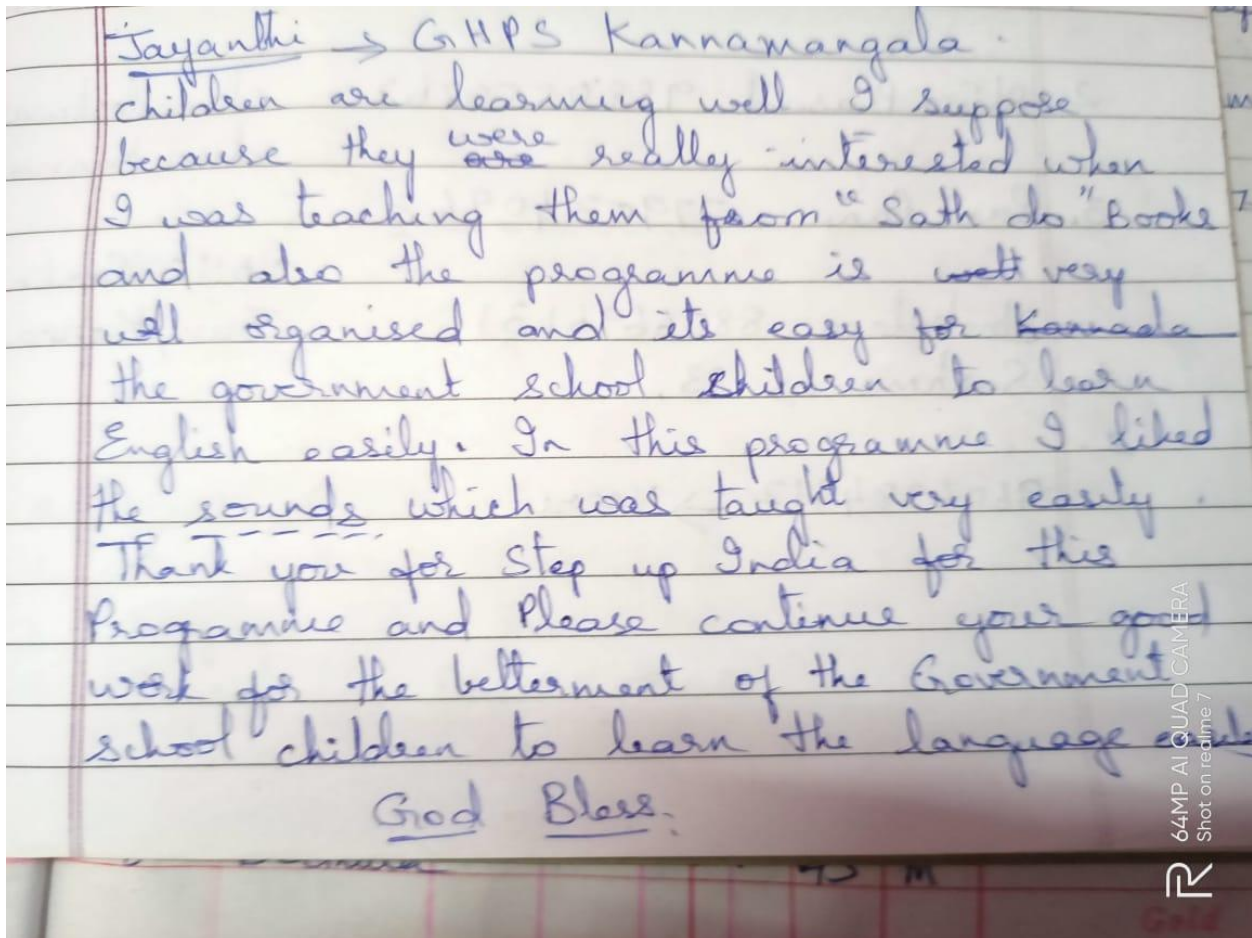 Jayanthi → GHPS Kannamangala.
children are learning well I suppose
because they were are really interested when
I was teaching them from "Sath do" Books
and also the programme is well very
well organised and its easy for Kannada
the government school children to learn
English easily. In this programme I liked
the sounds which was taught very easily.
Thank you for Step up India for this
Programme and Please continue your good
work for the betterment of the Government
school children to learn the language
God Bless.
64MP AI QUAD CAMERA
Shot on realme 7
Gold